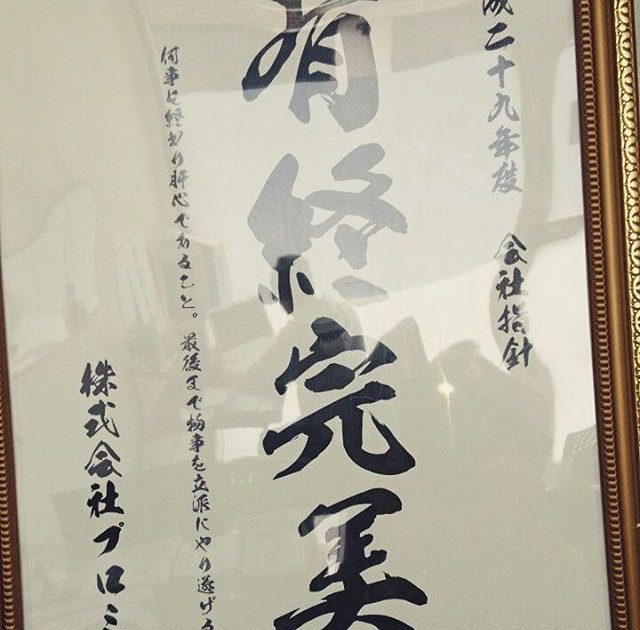 成二十九年度 会社指針
有終完美
何事も終わり肝心であること。最後まで物事を立派にやり遂げる
株式会社プロミ